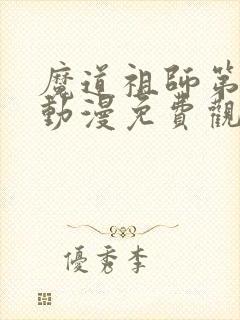 魔道祖師第
動漫免費觀
優秀李